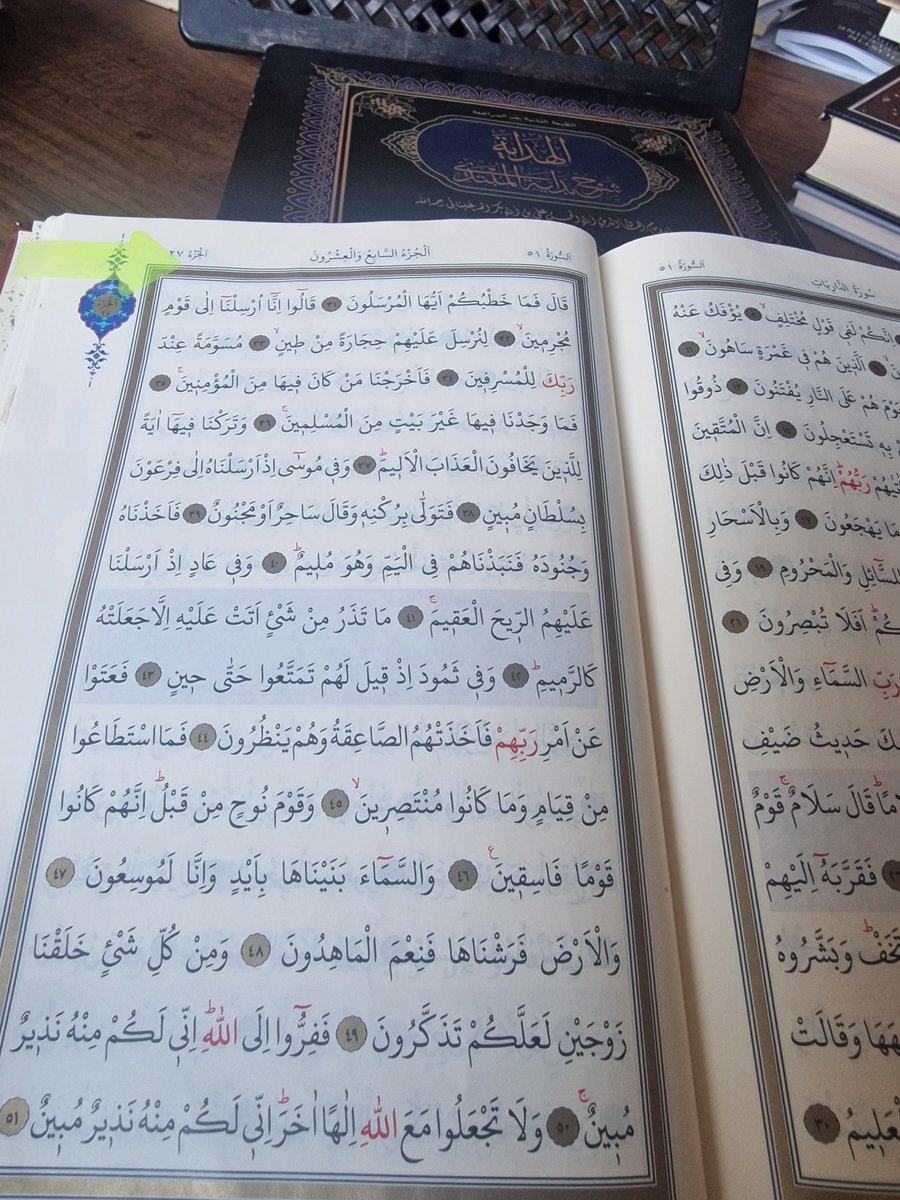 الطبعة الثانية بعد المراجعة
الهداية
شرح بداية المبتدي
اَلسُّورَةُ ٥١
سُورَةُ الذَّارِيَاتِ
اِنَّكُمْ لَفِي قَوْلٍ مُخْتَلِفٍۙ ٨ يُؤْفَكُ عَنْهُ
اَلَّذِينَ هُمْ فِي غَمْرَةٍ سَاهُونَۙ ١١
هُمْ عَلَى النَّارِ يُفْتَنُونَ ١٣ ذُوقُوا
بِهِ تَسْتَعْجِلُونَ ١٤ اِنَّ الْمُتَّقِينَ
رَبُّهُمْۜ اِنَّهُمْ كَانُوا قَبْلَ ذٰلِكَ
مَا يَهْجَعُونَ ١٧ وَبِالْاَسْحَارِ
لِلسَّائِلِ وَالْمَحْرُومِ ١٩ وَفِي
اَفَلَا تُبْصِرُونَ ٢١
رَبِّ السَّمَاءِ وَالْاَرْضِ
حَدِيثُ ضَيْفِ
قَالَ سَلَامٌۚ قَوْمٌ
فَقَرَّبَهُ اِلَيْهِمْ
تَخَفْۜ وَبَشَّرُوهُ
وَقَالَتْ
٣٠
اَلسُّورَةُ ٥١
اَلْجُزْءُ السَّابِعُ وَالْعِشْرُونَ
اَلْجُزْءُ ٢٧
قَالَ فَمَا خَطْبُكُمْ اَيُّهَا الْمُرْسَلُونَ ٣١ قَالُوا اِنَّٓا اُرْسِلْنَٓا اِلٰى قَوْمٍ
مُجْرِمِينَۙ ٣٢ لِنُرْسِلَ عَلَيْهِمْ حِجَارَةً مِنْ طِينٍۙ ٣٣ مُسَوَّمَةً عِنْدَ
رَبِّكَ لِلْمُسْرِفِينَ ٣٤ فَاَخْرَجْنَا مَنْ كَانَ فِيهَا مِنَ الْمُؤْمِنِينَۚ ٣٥
فَمَا وَجَدْنَا فِيهَا غَيْرَ بَيْتٍ مِنَ الْمُسْلِمِينَۚ ٣٦ وَتَرَكْنَا فِيهَٓا اٰيَةً
لِلَّذِينَ يَخَافُونَ الْعَذَابَ الْاَلِيمَۜ ٣٧ وَفِي مُوسٰٓى اِذْ اَرْسَلْنَاهُ اِلٰى فِرْعَوْنَ
بِسُلْطَانٍ مُبِينٍ ٣٨ فَتَوَلّٰى بِرُكْنِهِ وَقَالَ سَاحِرٌ اَوْ مَجْنُونٌ ٣٩ فَاَخَذْنَاهُ
وَجُنُودَهُ فَنَبَذْنَاهُمْ فِي الْيَمِّ وَهُوَ مُلِيمٌۜ ٤٠ وَفِي عَادٍ اِذْ اَرْسَلْنَا
عَلَيْهِمُ الرِّيحَ الْعَقِيمَۚ ٤١ مَا تَذَرُ مِنْ شَيْءٍ اَتَتْ عَلَيْهِ اِلَّا جَعَلَتْهُ
كَالرَّمِيمِۜ ٤٢ وَفِي ثَمُودَ اِذْ قِيلَ لَهُمْ تَمَتَّعُوا حَتّٰى حِينٍ ٤٣ فَعَتَوْا
عَنْ اَمْرِ رَبِّهِمْ فَاَخَذَتْهُمُ الصَّاعِقَةُ وَهُمْ يَنْظُرُونَ ٤٤ فَمَا اسْتَطَاعُوا
مِنْ قِيَامٍ وَمَا كَانُوا مُنْتَصِرِينَۙ ٤٥ وَقَوْمَ نُوحٍ مِنْ قَبْلُۜ اِنَّهُمْ كَانُوا
قَوْمًا فَاسِقِينَ ٤٦ وَالسَّمَٓاءَ بَنَيْنَاهَا بِاَيْدٍ وَاِنَّا لَمُوسِعُونَ ٤٧
وَالْاَرْضَ فَرَشْنَاهَا فَنِعْمَ الْمَاهِدُونَ ٤٨ وَمِنْ كُلِّ شَيْءٍ خَلَقْنَا
زَوْجَيْنِ لَعَلَّكُمْ تَذَكَّرُونَ ٤٩ فَفِرُّٓوا اِلَى اللّٰهِۜ اِنِّي لَكُمْ مِنْهُ نَذِيرٌ
مُبِينٌۚ ٥٠ وَلَا تَجْعَلُوا مَعَ اللّٰهِ اِلٰهًا اٰخَرَۜ اِنِّي لَكُمْ مِنْهُ نَذِيرٌ مُبِينٌ ٥١